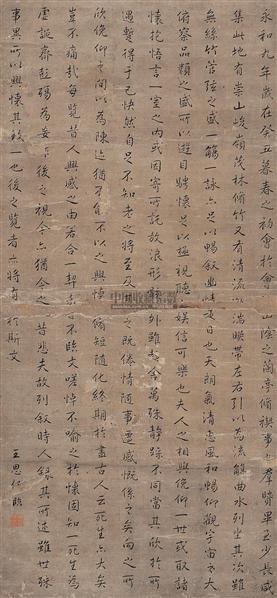 永和九年歲在癸丑暮春之初會於會山陰之蘭亭脩禊事也羣賢畢至少長咸
集此地有崇山峻領茂林脩竹又有清流激湍映帶左右引以為流觴曲水列坐其次雖
無絲竹管弦之盛一觴一詠亦足以暢叙幽情是日也天朗氣清惠風和暢仰觀宇宙之大
俯察品類之盛所以遊目騁懷足以極視聽娛信可樂也夫人之相與俛仰一世或取諸
懷抱悟言一室之內或因寄所託放浪形骸外雖趣舍萬殊靜躁不同當其欣於所
遇蹔得于己快然自足不知老之將至及其之既倦情隨事遷感慨係之矣向之所
欣俛仰之間以為陳迹猶不能不以之興懷脩短隨化終期於盡古人云死生亦大矣
豈不痛哉每覽昔人興感之由若合一契不臨文嗟悼不喻之於懷固知一死生為
虛誕齊彭殤為妄後之視今亦猶今之昔悲夫故列叙時人錄其所述雖世殊
事異所以興懷其致一也後之覽者亦將有於斯文
王思任臨